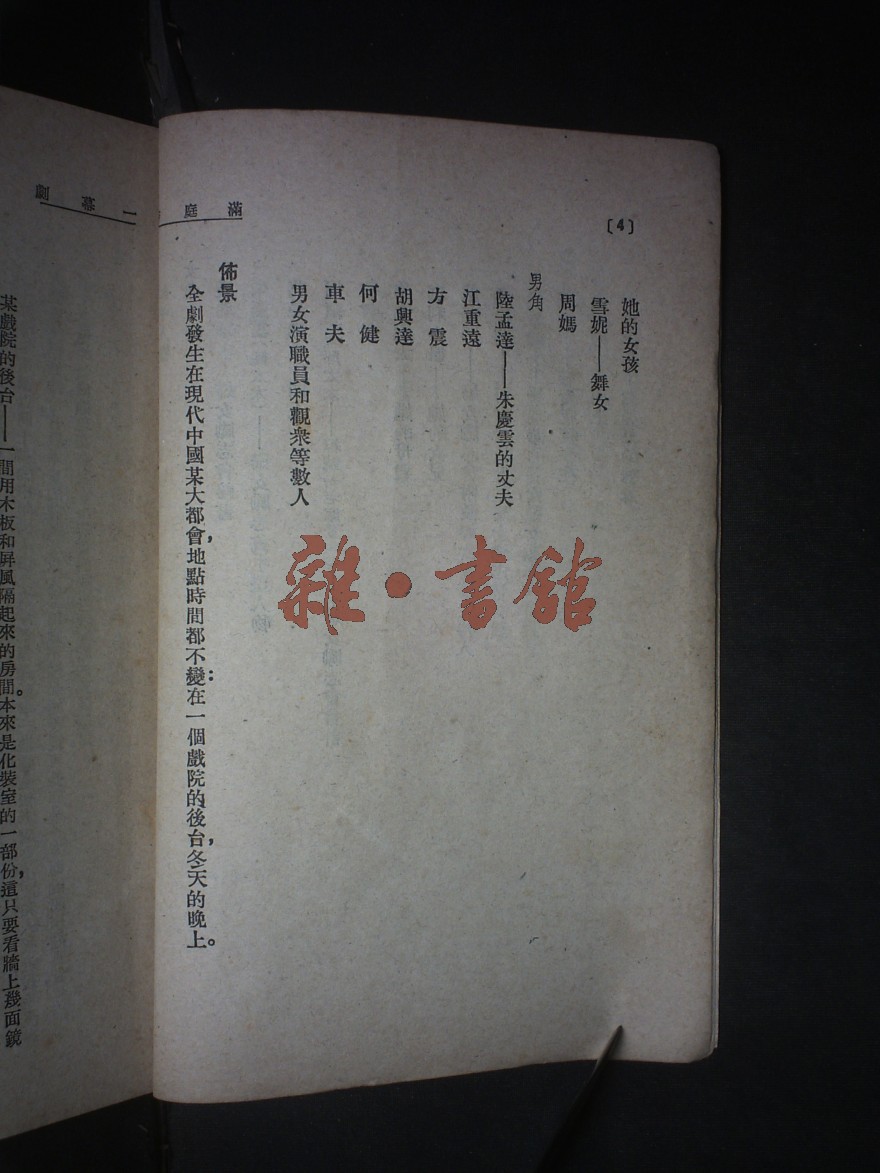 〔4〕
她的女孩
雪妮——舞女
周媽
男角
陸孟達——朱慶雲的丈夫
江重遠
方　震
胡興達
何　健
車　夫
男女演職員和觀衆等數人
佈景
全劇發生在現代中國某大都會，地點時間都不變：在一個戲院的後台，冬天的晚上。
滿庭
一幕劇
某戲院的後台——一間用木板和屏風隔起來的房間。本來是化裝室的一部份，這只要看牆上幾面鏡
雜·書館